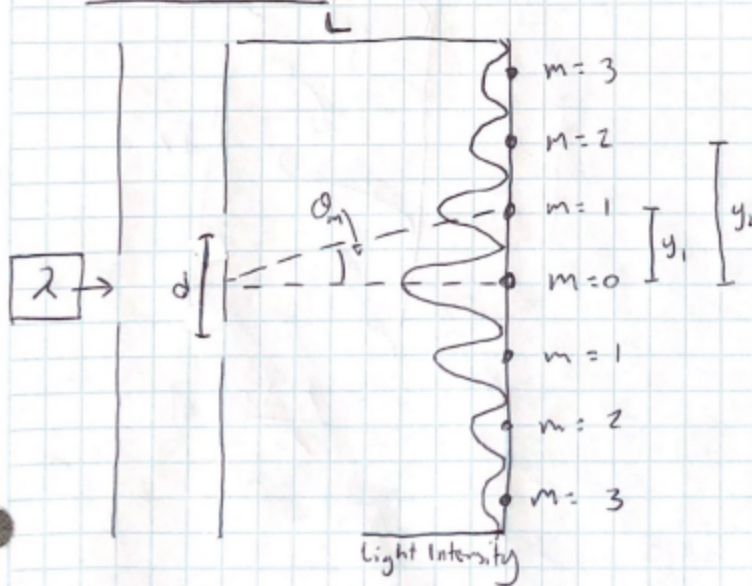 L
m = 3
m = 2
θm
m = 1
y1
y2
λ →
d
m = 0
m = 1
m = 2
m = 3
Light Intensity